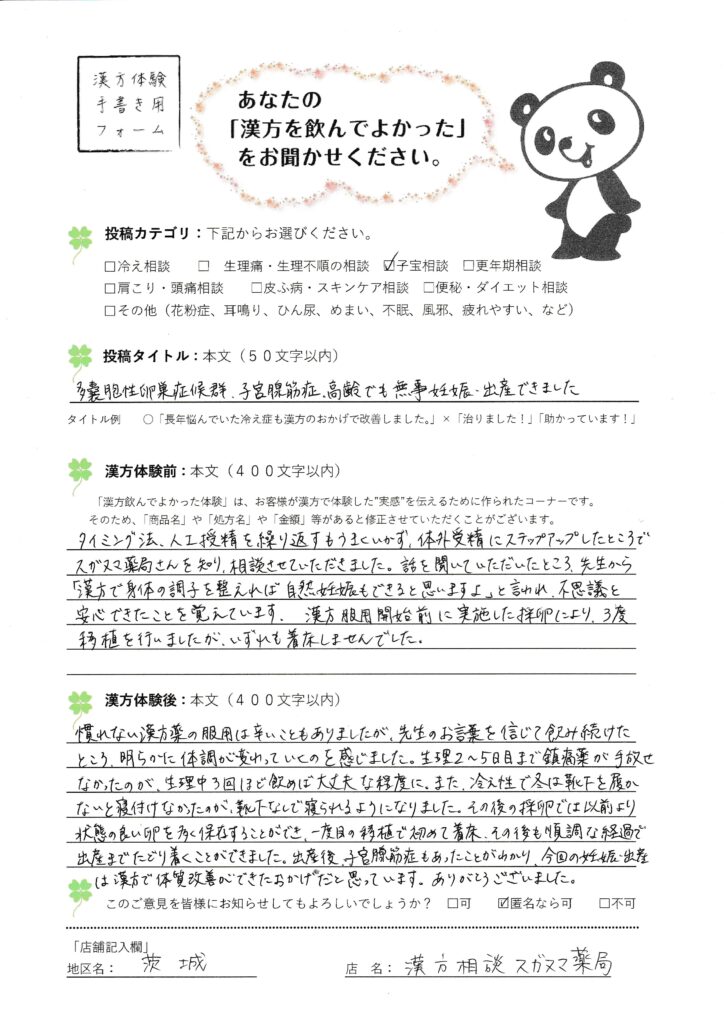 漢方体験
手書き用
フォーム
あなたの
「漢方を飲んでよかった」
をお聞かせください。
投稿カテゴリ：下記からお選びください。
□冷え相談 □ 生理痛・生理不順の相談 ☑子宝相談 □更年期相談
□肩こり・頭痛相談 □皮ふ病・スキンケア相談 □便秘・ダイエット相談
□その他（花粉症、耳鳴り、ひん尿、めまい、不眠、風邪、疲れやすい、など）
投稿タイトル：本文（５０文字以内）
多嚢胞性卵巣症候群、子宮腺筋症、高齢でも無事妊娠・出産できました
タイトル例 ○「長年悩んでいた冷え症も漢方のおかげで改善しました。」×「治りました！」「助かっています！」
漢方体験前：本文（４００文字以内）
「漢方飲んでよかった体験」は、お客様が漢方で体験した”実感”を伝えるために作られたコーナーです。
そのため、「商品名」や「処方名」や「金額」等があると修正させていただくことがございます。
タイミング法、人工授精を繰り返すもうまくいかず、体外受精にステップアップしたところで
スガヌマ薬局さんを知り、相談させていただきました。話を聞いていただいたところ、先生から
「漢方で身体の調子を整えれば自然妊娠もできると思いますよ」と言われ、不思議と
安心できたことを覚えています。 漢方服用開始前に実施した採卵により、3度
移植を行いましたが、いずれも着床しませんでした。
漢方体験後：本文（４００文字以内）
慣れない漢方薬の服用は辛いこともありましたが、先生のお言葉を信じて飲み続けた
ところ、明らかに体調が変わっていくのを感じました。生理2～5日目まで鎮痛薬が手放せ
なかったのが、生理中3回ほど飲めば大丈夫な程度に。また、冷え性で冬は靴下を履か
ないと寝付けなかったのが、靴下なしで寝られるようになりました。その後の採卵では以前より
状態の良い卵を多く保存することができ、一度目の移植で初めて着床、その後も順調な経過で
出産までたどり着くことができました。出産後、子宮腺筋症もあったことがわかり、今回の妊娠・出産
は漢方で体質改善ができたおかげだと思っています。ありがとうございました。
このご意見を皆様にお知らせしてもよろしいでしょうか？ □可 ☑匿名なら可 □不可
「店舗記入欄」
地区名： 茨城 店 名： 漢方相談 スガヌマ薬局